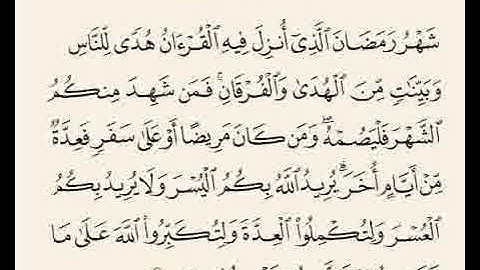 شَهْرُ رَمَضَانَ ٱلَّذِىٓ أُنزِلَ فِيهِ ٱلْقُرْءَانُ هُدًى لِّلنَّاسِ
وَبَيِّنَٰتٍ مِّنَ ٱلْهُدَىٰ وَٱلْفُرْقَانِ ۚ فَمَن شَهِدَ مِنكُمُ
ٱلشَّهْرَ فَلْيَصُمْهُ ۖ وَمَن كَانَ مَرِيضًا أَوْ عَلَىٰ سَفَرٍ فَعِدَّةٌ
مِّنْ أَيَّامٍ أُخَرَ ۗ يُرِيدُ ٱللَّهُ بِكُمُ ٱلْيُسْرَ وَلَا يُرِيدُ بِكُمُ
ٱلْعُسْرَ وَلِتُكْمِلُوا۟ ٱلْعِدَّةَ وَلِتُكَبِّرُوا۟ ٱللَّهَ عَلَىٰ مَا